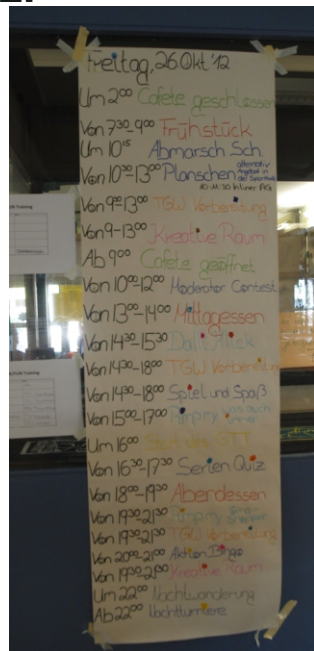 Freitag, 26 Okt '12
Um 2⁰⁰ Cafete geschlossen
Von 7³⁰-9⁰⁰ Frühstück
Um 10¹⁵ Abmarsch Sch.
Von 10³⁰-13⁰⁰ Planschen alternativ
Angebot in
der Sporthalle
Von 9⁰⁰-13⁰⁰ TGW Vorbereitung
Von 9-13⁰⁰ Kreative Raum
Ab 9⁰⁰ Cafete geöffnet
Von 10⁰⁰-12⁰⁰ Moderator Contest
Von 13⁰⁰-14⁰⁰ Mittagessen
Von 14³⁰-15³⁰
Von 14³⁰-18⁰⁰ TGW Vorbereitung
Von 14³⁰-18⁰⁰ Spiel und Spaß
Von 15⁰⁰-17⁰⁰ was auch
immer
Um 16⁰⁰ Start des
Von 16³⁰-17³⁰ Serien Quiz
Von 18⁰⁰-19³⁰ Aberdessen
Von 19³⁰-21³⁰
Von 19³⁰-21³⁰ TGW Vorbereitung
Von 20⁰⁰-21⁰⁰ Aktion Bingo
Von 19³⁰-21³⁰ Kreative Raum
Um 22⁰⁰ Nachtwanderung
Ab 22⁰⁰ Nachtturniere